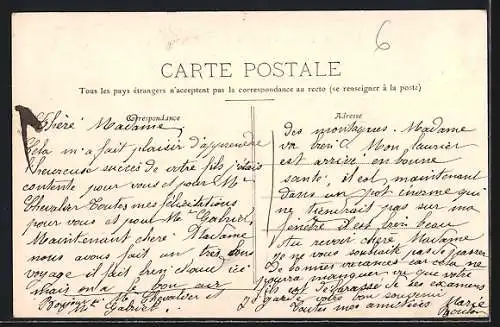 6
CARTE POSTALE
Tous les pays étrangers n'acceptent pas la correspondance au recto (se renseigner à la poste)
Correspondance
Chère Madame
Cela m'a fait plaisir d'apprendre
l'heureuse succès de votre fils j'étais
contente pour vous et pour Mr
Chevalier toutes mes félicitations
pour vous et pour Mr Gabriel
Maintenant chère Madame
nous avons fait un très bon
voyage il fait bien chaud ici
Mais on a le bon air
Bonjour à Mr Chevalier et
Mr Gabriel
Adresse
des montagnes. Madame
va bien. Mon laurier
est arrivé en bonne
santé, il est maintenant
dans un pot énorme qui
ne tiendrait pas sur ma
fenêtre il est bien beau
Au revoir chère Madame
Je ne vous souhaite pas de passer
de bonnes vacances car cela ne
pourra manquer vu que votre
fils est débarassé de ses examens
Je garde votre bon souvenir
Toutes mes amitiées Marie